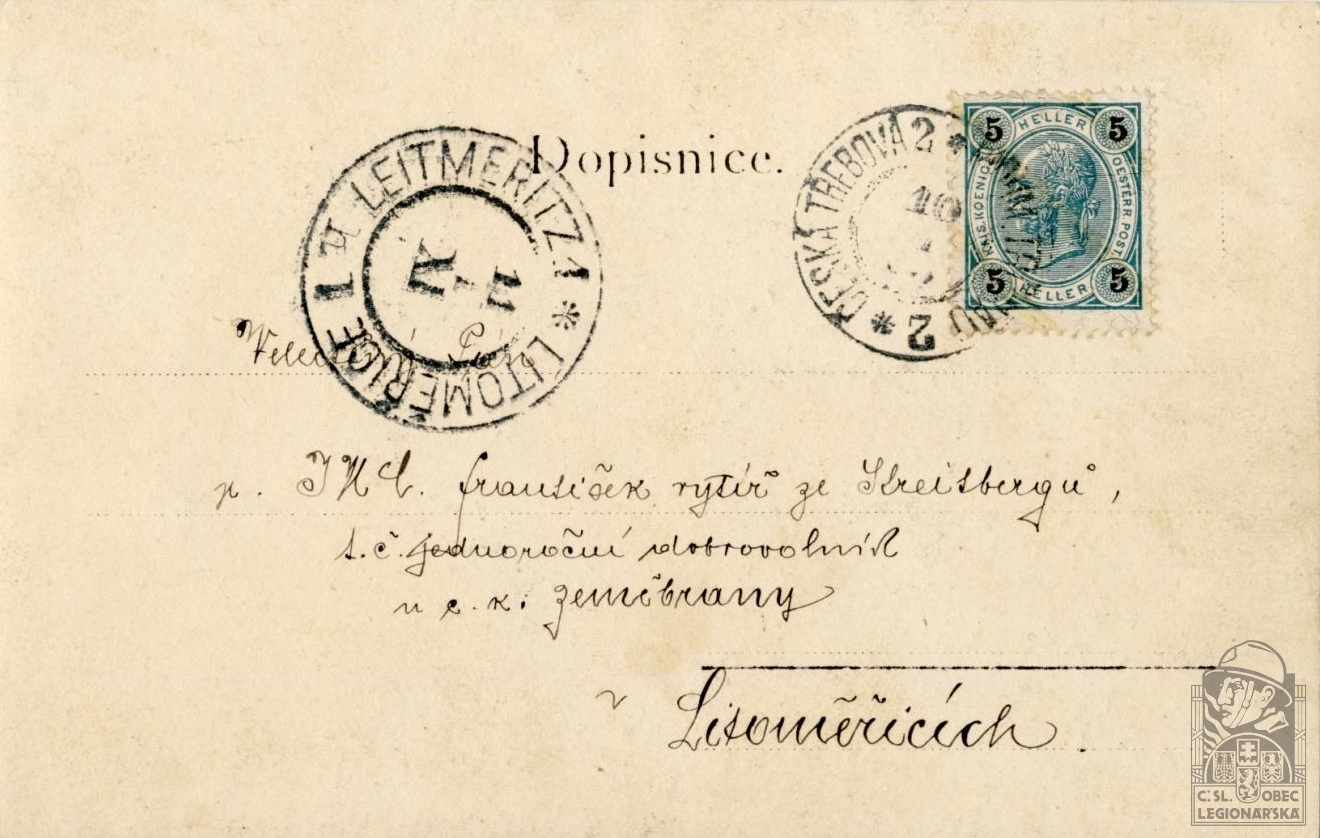 Dopisnice.
LEITMERITZ 1 * LITOMĚŘICE 1
11
IX
ČESKÁ TŘEBOVÁ 2 *
2 *
10
5 HELLER 5
K.K. OESTERR. POST.
5 HELLER 5
Pán
p. František rytíř ze Kreitsbergů,
t. č. jednoroční dobrovolník
u c. k. zeměbrany
v
Litoměřicích.
Č.SL. OBEC
LEGIONÁŘSKÁ